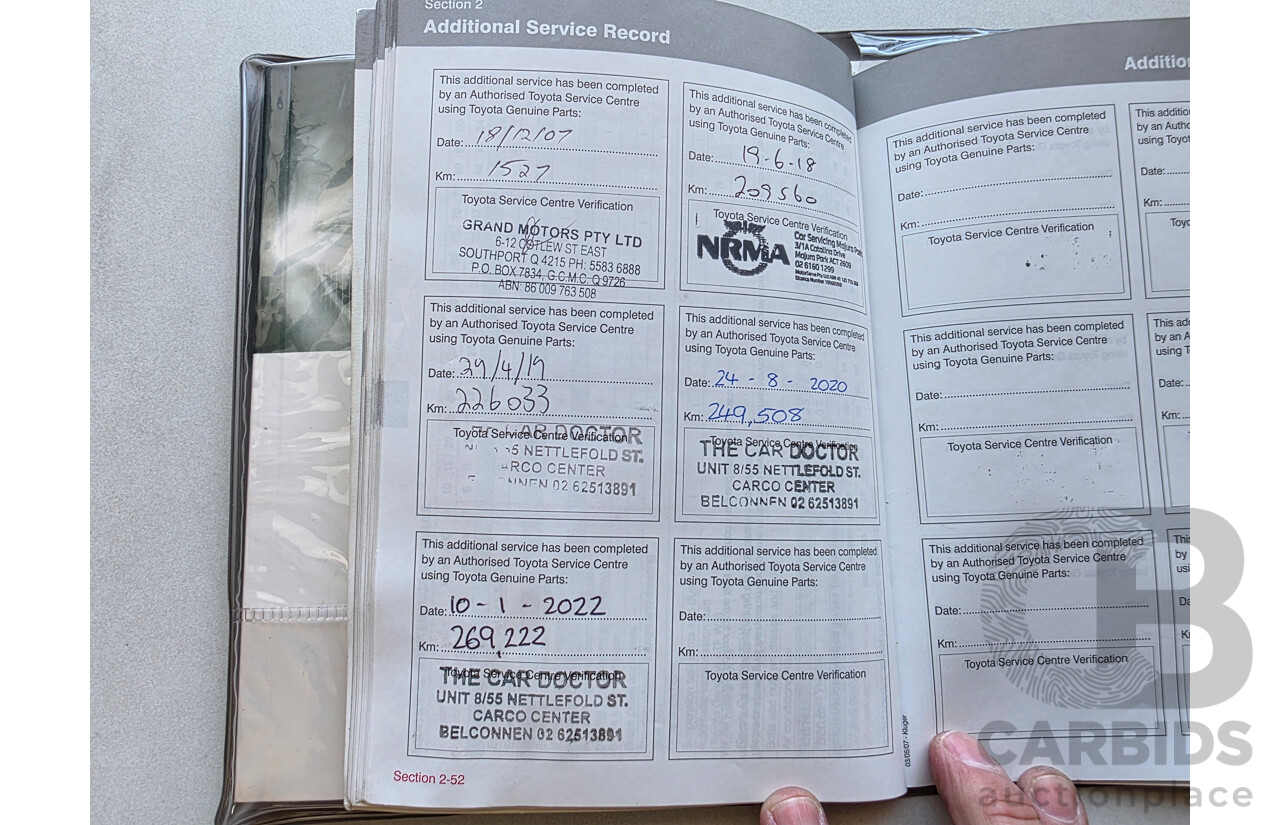 Section 2
Additional Service Record
This additional service has been completed
by an Authorised Toyota Service Centre
using Toyota Genuine Parts:
Date: 18/12/07
Km: 1527
Toyota Service Centre Verification
GRAND MOTORS PTY LTD
6-12 OTLEW ST EAST
SOUTHPORT Q 4215 PH: 5583 6888
P.O. BOX 7834, G.C.M.C. Q 9726
ABN: 86 009 763 508
This additional service has been completed
by an Authorised Toyota Service Centre
using Toyota Genuine Parts:
Date: 19-6-18
Km: 209560
Toyota Service Centre Verification
NRMA
Car Servicing Majura Park
3/1A Catalina Drive
Majura Park ACT 2609
02 6160 1299
This additional service has been completed
by an Authorised Toyota Service Centre
using Toyota Genuine Parts:
Date: 29/4/19
Km: 226033
Toyota Service Centre Verification
CAR DOCTOR
55 NETTLEFOLD ST.
CARCO CENTER
02 62513891
This additional service has been completed
by an Authorised Toyota Service Centre
using Toyota Genuine Parts:
Date: 24 - 8 - 2020
Km: 249,508
Toyota Service Centre Verification
THE CAR DOCTOR
UNIT 8/55 NETTLEFOLD ST.
CARCO CENTER
BELCONNEN 02 62513891
This additional service has been completed
by an Authorised Toyota Service Centre
using Toyota Genuine Parts:
Date: 10 - 1 - 2022
Km: 269,222
Toyota Service Centre Verification
THE CAR DOCTOR
UNIT 8/55 NETTLEFOLD ST.
CARCO CENTER
BELCONNEN 02 62513891
This additional service has been completed
by an Authorised Toyota Service Centre
using Toyota Genuine Parts:
Date:
Km:
Toyota Service Centre Verification
Section 2-52
03/05/07 - Kluger
Additio
This additional service has been completed
by an Authorised Toyota Service Centre
using Toyota Genuine Parts:
Date:
Km:
Toyota Service Centre Verification
This addi
by an Autho
using Toyo
Date:
Km:
Toyo
This additional service has been completed
by an Authorised Toyota Service Centre
using Toyota Genuine Parts:
Date:
Km:
Toyota Service Centre Verification
This ad
by an A
using T
Date:
Km:
T
This additional service has been completed
by an Authorised Toyota Service Centre
using Toyota Genuine Parts:
Date:
Km:
Toyota Service Centre Verification
This
by
CARBIDS
auctionplace